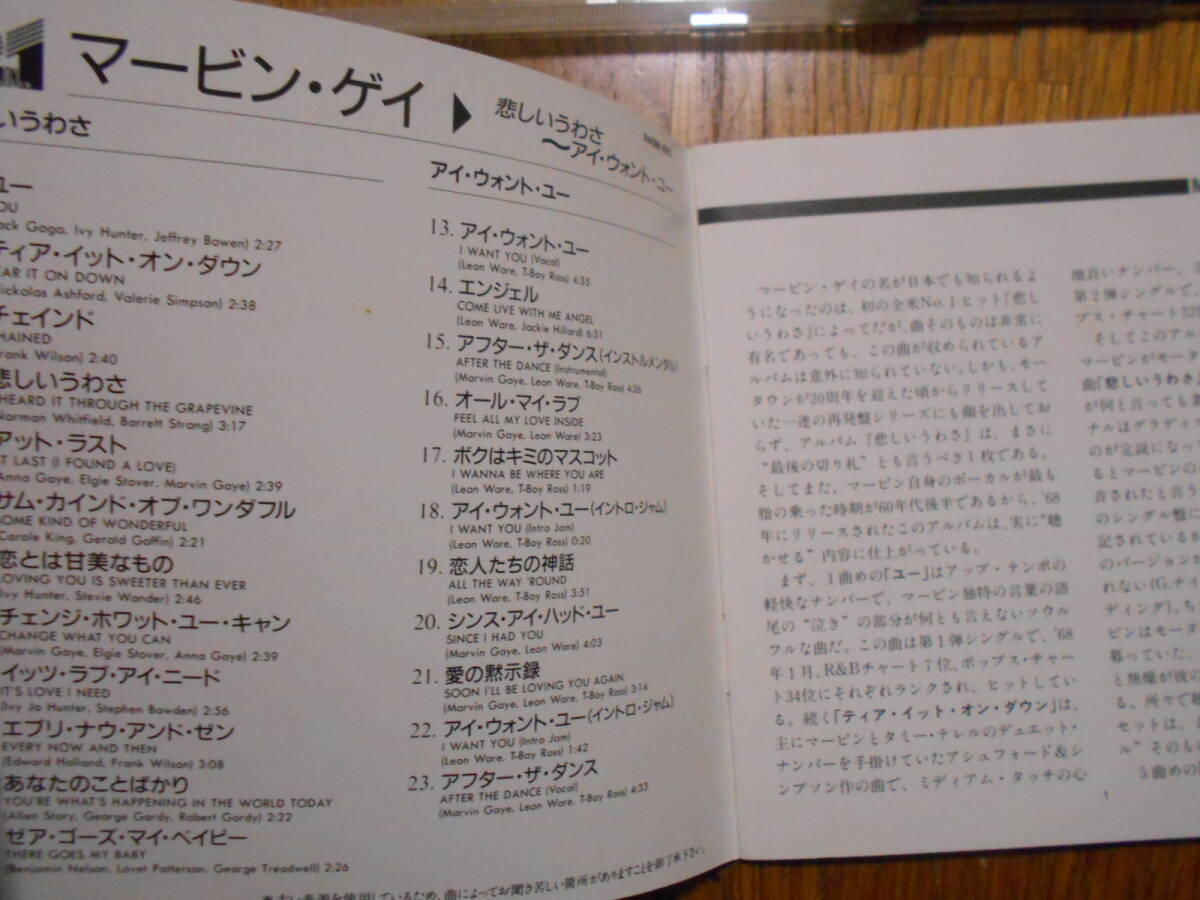 マービン・ゲイ ▶ 悲しいうわさ
〜アイ・ウォント・ユー
いうわさ
ユー
OU
ack Goga, Ivy Hunter, Jeffrey Bowen) 2:27
ティア・イット・オン・ダウン
EAR IT ON DOWN
Nickolas Ashford, Valerie Simpson) 2:38
チェインド
HAINED
Frank Wilson) 2:40
悲しいうわさ
HEARD IT THROUGH THE GRAPEVINE
Norman Whitfield, Barrett Strong) 3:17
アット・ラスト
T LAST (I FOUND A LOVE)
Anna Gaye, Elgie Stover, Marvin Gaye) 2:39
サム・カインド・オブ・ワンダフル
SOME KIND OF WONDERFUL
Carole King, Gerald Goffin) 2:21
恋とは甘美なもの
LOVING YOU IS SWEETER THAN EVER
(Ivy Hunter, Stevie Wonder) 2:46
チェンジ・ホワット・ユー・キャン
CHANGE WHAT YOU CAN
(Marvin Gaye, Elgie Stover, Anna Gaye) 2:39
イッツ・ラブ・アイ・ニード
IT'S LOVE I NEED
(Ivy Jo Hunter, Stephen Bowden) 2:56
エブリ・ナウ・アンド・ゼン
EVERY NOW AND THEN
(Edward Holland, Frank Wilson) 3:08
あなたのことばかり
YOU'RE WHAT'S HAPPENING IN THE WORLD TODAY
(Allen Story, George Gordy, Robert Gordy) 2:22
ゼア・ゴーズ・マイ・ベイビー
THERE GOES MY BABY
(Benjamin Nelson, Lovet Patterson, George Treadwell) 2:26
アイ・ウォント・ユー
13. アイ・ウォント・ユー
I WANT YOU (Vocal)
(Leon Ware, T-Boy Ross) 4:35
14. エンジェル
COME LIVE WITH ME ANGEL
(Leon Ware, Jackie Hillard) 6:31
15. アフター・ザ・ダンス(インストルメンタル)
AFTER THE DANCE (Instrumental)
(Marvin Gaye, Leon Ware, T-Boy Ross) 4:26
16. オール・マイ・ラブ
FEEL ALL MY LOVE INSIDE
(Marvin Gaye, Leon Ware) 3:23
17. ボクはキミのマスコット
I WANNA BE WHERE YOU ARE
(Leon Ware, T-Boy Ross) 1:19
18. アイ・ウォント・ユー(イントロ・ジャム)
I WANT YOU (Intro Jam)
(Leon Ware, T-Boy Ross) 0:20
19. 恋人たちの神話
ALL THE WAY 'ROUND
(Leon Ware, T-Boy Ross) 3:51
20. シンス・アイ・ハッド・ユー
SINCE I HAD YOU
(Marvin Gaye, Leon Ware) 4:03
21. 愛の黙示録
SOON I'LL BE LOVING YOU AGAIN
(Marvin Gaye, Leon Ware, T-Boy Ross) 3:14
22. アイ・ウォント・ユー(イントロ・ジャム)
I WANT YOU (Intro Jam)
(Leon Ware, T-Boy Ross) 1:42
23. アフター・ザ・ダンス
AFTER THE DANCE (Vocal)
(Marvin Gaye, Leon Ware, T-Boy Ross) 4:33
を使用しているため、曲によってお聞き苦しい箇所がありますことを御了承下さい。
マービン・ゲイの名が日本でも知られるよ
うになったのは、初の全米No.1ヒット「悲し
いうわさ」によってだが、曲そのものは非常に
有名であっても、この曲が収められているア
ルバムは意外に知られていない。しかも、モー
タウンが20周年を迎えた頃からリリースして
いた一連の再発盤シリーズにも顔を出してお
らず、アルバム『悲しいうわさ』は、まさに
“最後の切り札”とも言うべき1枚である。
そしてまた、マービン自身のボーカルが最も
脂の乗った時期が60年代後半であるから、'68
年にリリースされたこのアルバムは、実に“聴
かせる”内容に仕上がっている。
まず、1曲めの「ユー」はアップ・テンポの
軽快なナンバーで、マービン独特の言葉の語
尾の“泣き”の部分が何とも言えないソウル
フルな曲だ。この曲は第1弾シングルで、'68
年1月、R&Bチャート7位、ポップス・チャー
ト34位にそれぞれランクされ、ヒットしてい
る。続く「ティア・イット・オン・ダウン」は、
主にマービンとタミー・テレルのデュエット・
ナンバーを手掛けていたアシュフォード&シ
ンプソン作の曲で、ミディアム・タッチの心
地良いナンバー。
第2弾シングルで、
プス・チャート32
そしてこのアル
マービンがモータ
曲「悲しいうわさ」
が何と言っても
ナルはグラディス
のが定説になっ
るとマービンの
音されたと言う
のシングル盤に
記されているか
のバージョンか
れない(G.ナイ
ディング)。ち
ビンはモータ
慕っていた、
と焦燥が彼の
る。所々で
セットは、
ル”そのも
5曲めの
1